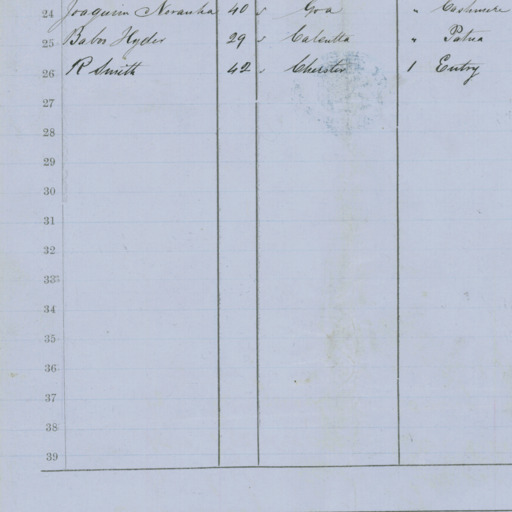 24 Joaquim Noranha 40 " Goa " Cashmere
25 Babos Hyder 29 " Calcutta " Patna
26 R Smith 42 " Chester 1 Entry
27
28
29
30
31
32
33
34
35
36
37
38
39